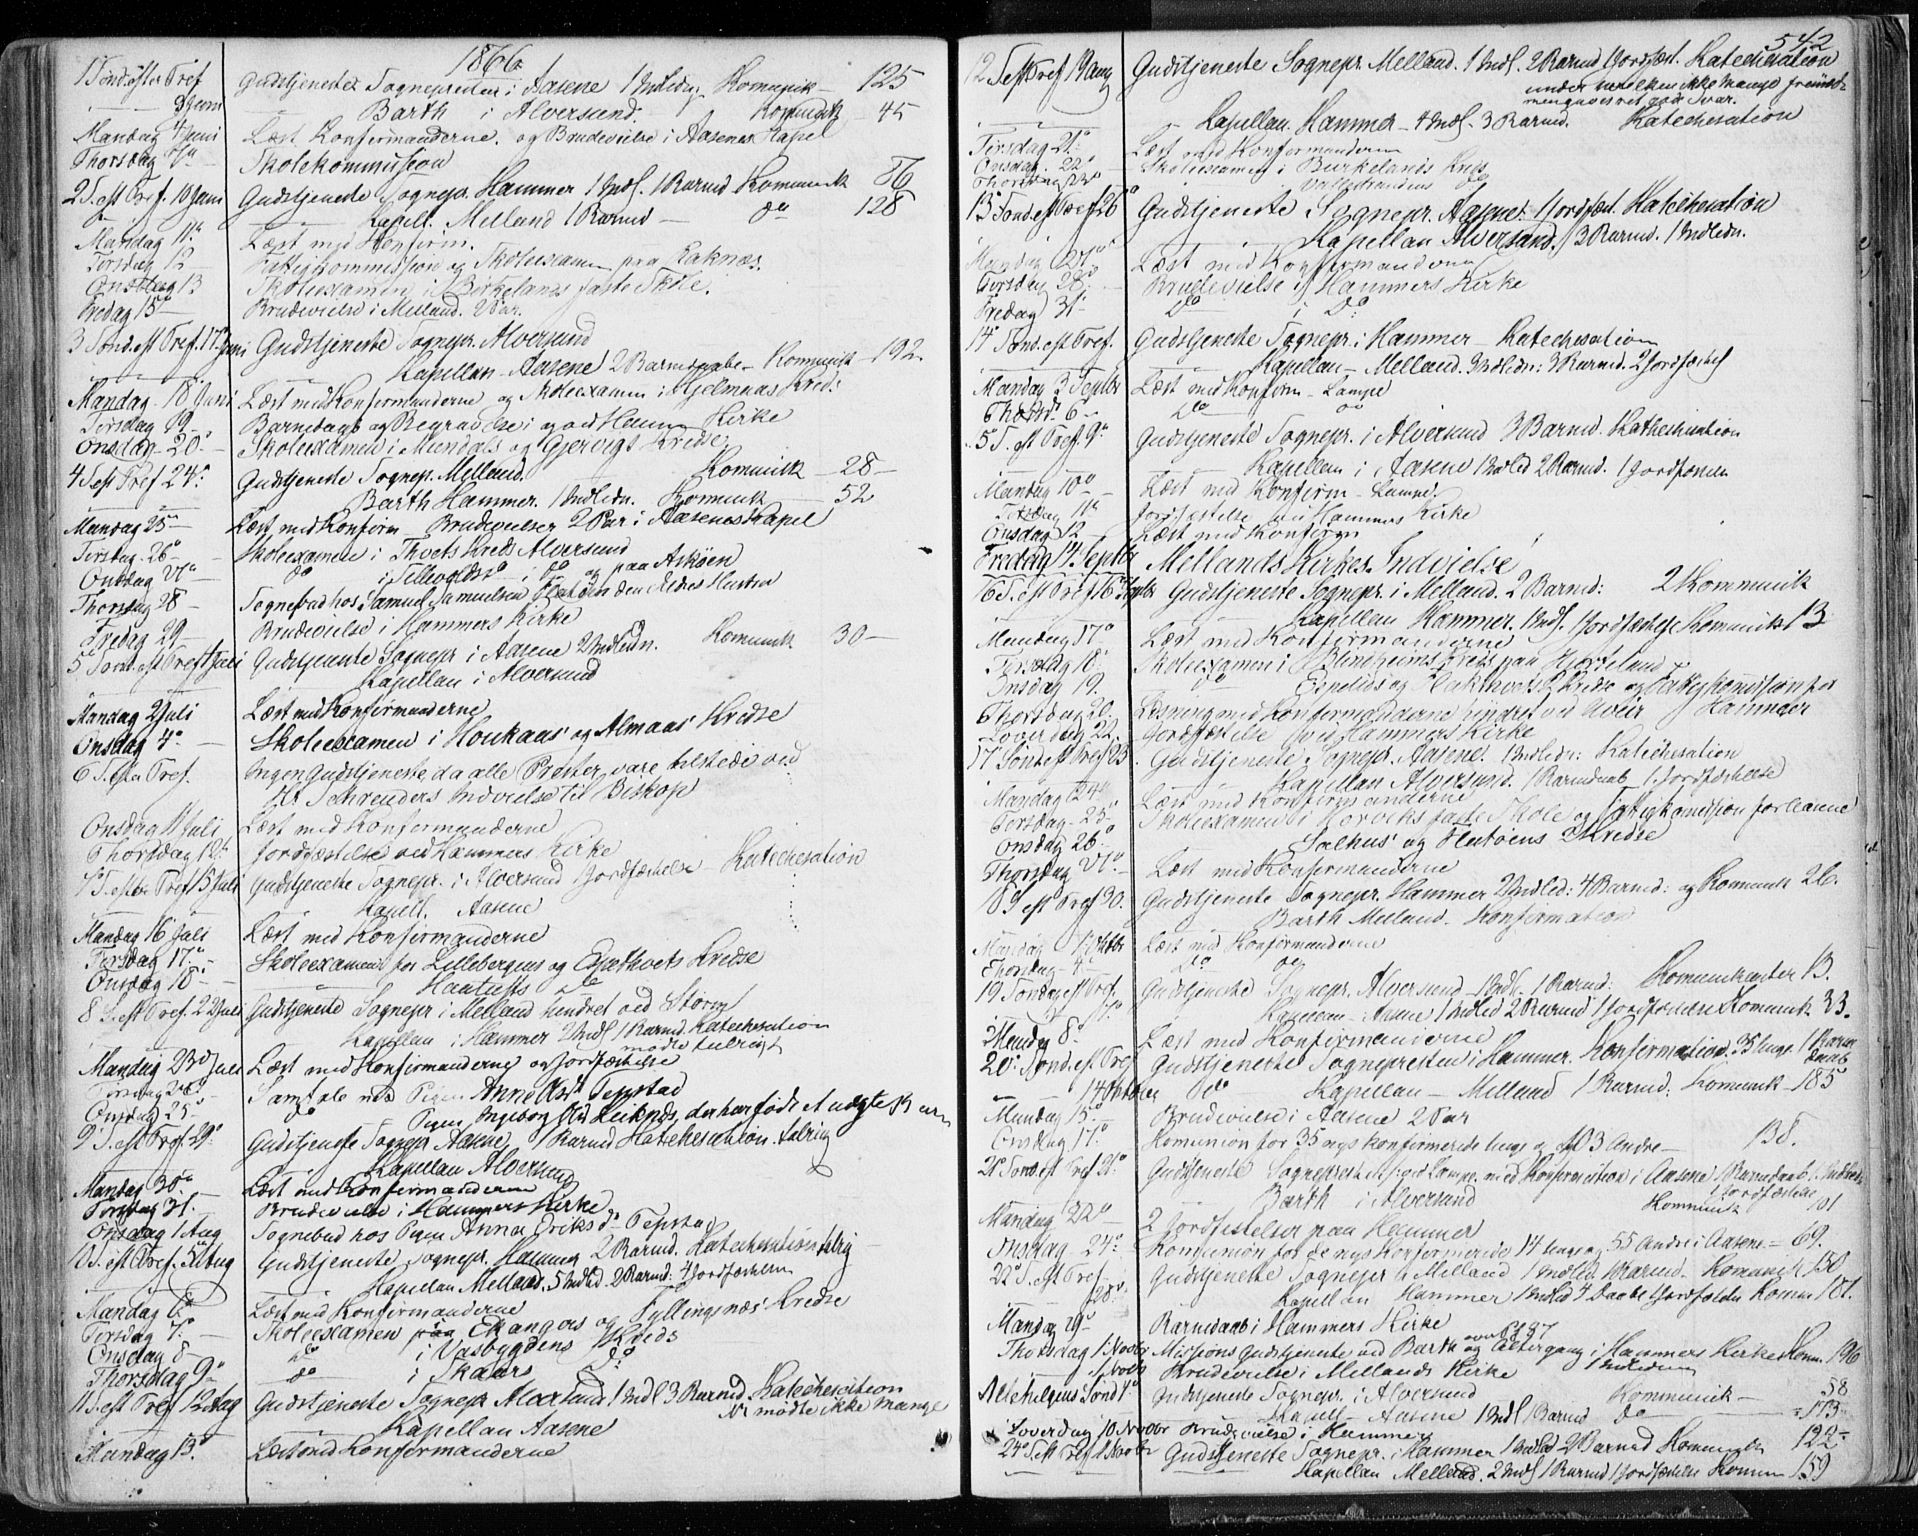 1866.
1 Sønd. efter Tref 3 Juni Gudstjeneste Sognepresten i Aasene 1 Indledn Komunik — 125
Barth i Alversund. Kommunik — 45
Mandag 4 Juni Læst Konfirmanderne. og Brudevielse i Aasene Kapel
Thorsdag 7de Skolekommission
2 S. eft Tref. 10 Juni Gudstjeneste Sognepr. Hammer 1 Indl. 1 Barnd Komunik 86
Kapell. Melland 1 Barnd — do 128
Mandag 11te Læst med Konfirm.
Tirsdag 12 Fattigkommission og Skoleexamen paa Raknæs.
Onsdag 13 Skoleexamen i Birkelands faste Skole.
Fredag 15de Brudevielse i Melland. 2 Par.
3 Sønd. eft Tref. 17 Juni Gudstjeneste Sognepr. Alversund
Kapellan Aasene 2 Barnedaabe — Komunik — 192.
Mandag 18 Juni Læst med Konfirmanderne og Skoleexamen i Hjelmaas Kreds
Tirsdag 19 — Barnedaab og Begravelse i og ved Hammers Kirke
Onsdag 20 — Skoleexamen i Mundals og Gjervigs Kredse
4 S eft Tref 24de Gudstjeneste Sognepr. Melland. Komunik — 28 —
Barth Hammer. 1 Indledn. Komunik — 52
Mandag 25 — Læst med Konfirm — Brudevielser 2 Par i Aasenes Kapel
Tirsdag 26 — Skoleexamene i Thvets Kreds Alversund
Onsdag 27 — do i do og paa Askøen
Thorsdag 28 — Sognebud hos Samuel Samuelsen den Ældres Hustru
Fredag 29 — Brudevielse i Hammers Kirke
5 Sønd. eft Tref 1 Juli Gudstjeneste Sognepr i Aasene 2 Indledn. Komunik 30 —
Kapellan i Alversund
Mandag 2 Juli Læst med Konfirmanderne
Onsdag 4 — Skoleexamen i Houkaas og Almaas Kredse
6 S. efter Tref. Ingen Gudstjeneste da alle Prester vare tilstede ved
Hr Schreuders Indvielse til Biskop
Onsdag 11 Juli Læst med Konfirmanderne
Thorsdag 12 Jordfæstelse ved Hammers Kirke
7 S. efter Tref 15 Juli Gudstjeneste Sognepr. i Alversund Jordfæstelse Katechesation
Kapell. Aasene
Mandag 16 Juli Læst med Konfirmanderne
Tirsdag 17 — Skoleexamen for Lillebergens og Espethvets Kredse
Onsdag 18 — Hantvets do
8 S. eft Tref. 22 Juli Gudstjeneste Sognepr i Melland hindret ved Storm
Kapellan i Hammer 2 Indl 1 Barnd. Katechesation
mødte talrigt
Mandag 23 Juli Læst med Konfirmanderne og Jordfæstelse
Samtale med Pigen Anne Tepstad
Onsdag 25 do Pigen Ingeborg Leiknæs, da har født et uægte Barn
9 S. eft Tref 29 Gudstjeneste Sognepr Aasene 1 Barnd Katechesation. talrig
Kapellan Alversund
Mandag 30 — Læst med Konfirmanderne
Tirsdag 31. Brudevielse i Hammers Kirke
Onsdag 1 Aug Sognebud hos Pigen Anna Eriksdr Tepstad
10 S. eft Tref. 5 Aug Gudstjeneste Sognepr. Hammer 2 Barnd. Katechesation talrig
Kapellan Melland. 5 Indled. 2 Barnd. 4 Jordfæstelser
Mandag 6 Læst med Konfirmanderne
Tirsdag 7 — Skoleexamen paa Ekangers og Fyllingsnæs Kredse
Onsdag 8 — do i Vasbygdens Kreds
Thorsdag 9 do i Skaars do
11 S. eft Tref 12 Aug Gudstjeneste Sognepr Alversund 1 Indl 3 Barnd Katechesation
NB mødte ikke mange
Kapellan Aasene
Mandag 13 Læst med Konfirmanderne
542
12 S eft Tref 19 Aug Gudstjeneste Sognepr. Melland. 1 Indl. 2 Barnd 1 Jordfæst. Katechesation
under hvilken ikke mange fremst
men gaves ret god Svar.
Kapellan Hammer — 4 Indl. 3 Barnd. Katechesation
Tirsdag 21 Læst med Konfirmanderne
Onsdag 22 Skoleexamen i Birkelands Kreds
Thorsdag 23 do
13 Sønd. eft Tref 26 Gudstjeneste Sognepr. Aasene. 1 Jordfæst. Katechesation
Kapellan Alversund. 3 Barnd. 1 Indledn.
Mandag 27 Læst med Konfirmanderne
Tirsdag 28 Brudevielse i Hammers Kirke
Fredag 31 do i do
14 Sønd. eft Tref. Gudstjeneste Sognepr. i Hammer — Katechesation
Kapellan — Melland. 3 Indledn: 3 Barnd. 2 Jordfæstels
Mandag 3 Septbr Læst med Konfirm — Lampe
Thorsd. 6 — do do
15 S. eft Tref. 9 Gudstjeneste Sognepr. i Alversund 3 Barnd. Kathechisation
Kapellan i Aasene 1 Indled 2 Barnd. 1 Jordfæstelse
Mandag 10 — Læst med Konfirm — Lampe.
Tirsdag 11 Jordfæstelse ved Hammers Kirke
Onsdag 12 Læst med Konfirm
Fredag 14 Septbr Mellands Kirkes Indvielse
16 S. eft Tref 16 Septbr Gudstjeneste Sognepr. i Melland. 2 Barnd: 2 Kommunik
Kapellan Hammer. 1 Indl. 1 Jordfæstelse Komunik 13
Mandag 17 Læst med Konfirmanderne
Tirsdag 18 Skoleexamen i Blindheims Kreds paa Hjorteland
Onsdag 19. do Espelids og Kredse og Fattigkomission for
Hammer
Thorsdag 20. Lesning med Konfirmanderne hindret ved Uveir
Løverdag 22. Jordfæstelse ved Hammers Kirke
17 Sønd. eft Tref 23 Gudstjeneste Sognepr. Aasene. 1 Indledn: Katechesation
Kapellan Alversund. 1 Barnedaab 1 Jordfæstelse
Mandag 24 Læst med Konfirmanderne
Tirsdag 25 — Skoleexamen i Horviks faste Skole og Fattigkomission for
Onsdag 26 Salhus og Flatøens Kredse
Thorsdag 27 — Læst med Konfirmanderne
18 S eft Tref 30. Gudstjeneste Sognepr. Hammer 2 Indled: 4 Barnd: og Komunik 26.
Barth Melland. Konfirmation
Mandag 1 Oktbr Læst med Konfirmanderne
Thorsdag 4 — do do
19 Søndag eft Tref. 7 Gudstjeneste Sognepr. Alversund — 1 Indl. 1 Barnd: Komunikanter 13.
Kapellan — Aasene 1 Indled 2 Barnd 1 Jordfæstelse Komunik 33.
Mandag 8 Læst med Konfirmanderne
20 Sønd. eft Tref 14 Oktober Gudstjeneste Sognepresten i Hammer. Konfirmation. 35 unge. 1 Barne daab
do Kapellan — Melland 1 Barnd: Komunik — 185
Mandag 15 Brudevielse i Aasene 2 Par
Onsdag 17 Komunion for 35 nys konfirmerede unge og 103 Andre — 138.
21 Sønd. eft Tref 21 Gudstjeneste Sognepresten Lampe med Konfirmation i Aasene Barnedaab 1 Indledn
1 Jordfæstelse
Barth i Alversund Kommunik 91
Mandag 22 2 Jordfestelser paa Hammer
Onsdag 24 Komunion for de nys Konfirmerede 14 unge og 55 Andre i Aasene = 69.
22 S. eft Tref 28 Gudstjeneste Sognepr i Melland 1 Indled. 1 Barnd. Komunik 150
Kapellan Hammer 1 Indled 4 Daabe 1 Jordfæstelse Komun 181.
Mandag 29 Barnedaab i Hammers Kirke
Thorsdag 1 Novbr Missions Gudstjeneste ved Barth og Altergang i Hammers Kirke Komm. 196
Brudevielse i Mellands Kirke
1 Indledn
Allehelgens Sønd 4 Gudstjeneste Sognepr. i Alversund Kommunik — 58
Kapell — Aasene 1 Indl 1 Barnd do — 113
Løverdag 10 Novbr Brudevielse i Hammer
24 S eft Tref 11 Novbr Gudstjeneste Sognepr. i Hammer 1 Indled 2 Barnd Kommunik 122
Kapellan Melland. 2 Indl 1 Barnd 1 Jordfæstelse Komun 159